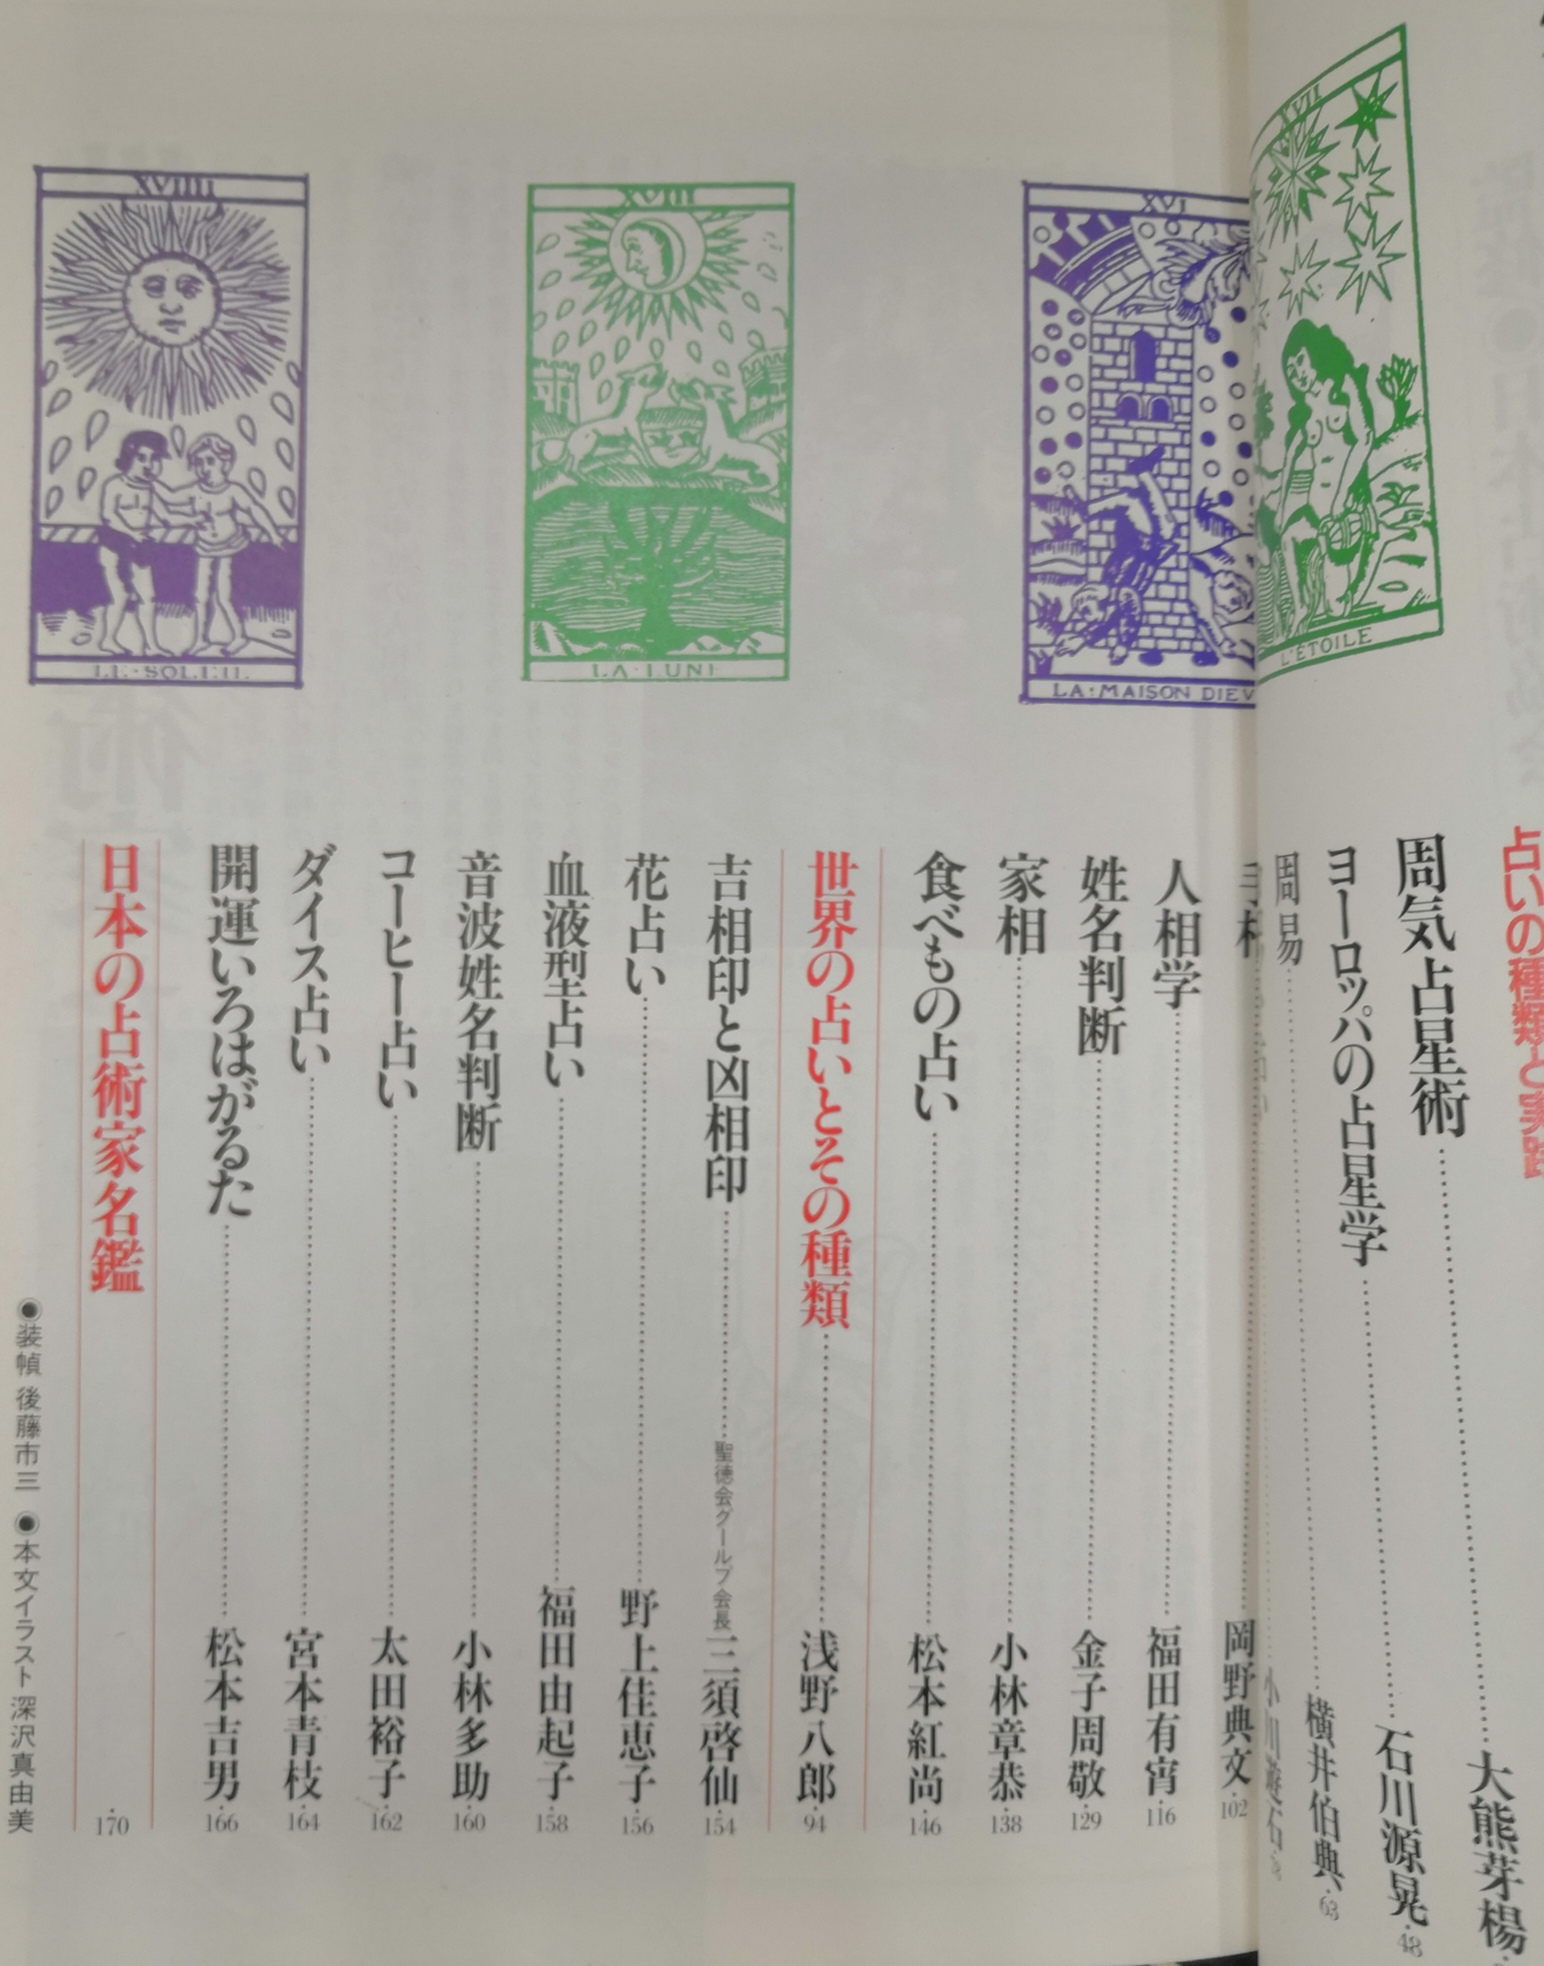 XVII
L'ÉTOILE
XVI
LA·MAISON DIEV
XVIII
LA·LUNE
XVIIII
LE·SOLEIL
占いの種類と実践
周気占星術 大熊芽楊
ヨーロッパの占星学 石川源晃・48
周易 横井伯典・63
手相 岡野典文・102
人相学 福田有宵・116
姓名判断 金子周敬・129
家相 小林章恭・138
食べもの占い 松本紅尚・146
世界の占いとその種類 浅野八郎・94
吉相印と凶相印 聖徳会グールプ会長 三須啓仙・154
花占い 野上佳恵子・156
血液型占い 福田由起子・158
音波姓名判断 小林多助・160
コーヒー占い 太田裕子・162
ダイス占い 宮本青枝・164
開運いろはがるた 松本吉男・166
日本の占術家名鑑・170
◉装幀 後藤市三 ◉本文イラスト 深沢真由美